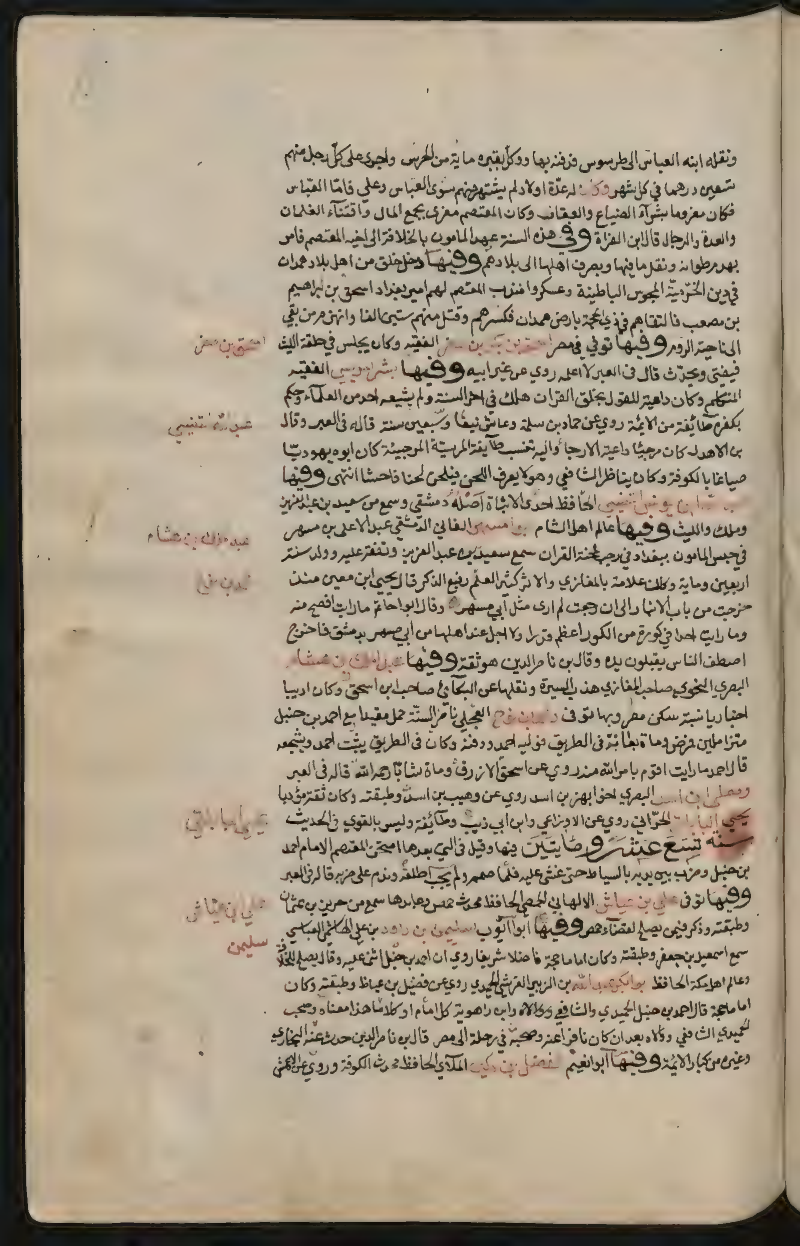 ونقله ابنه العباس الى طرسوس فدفنه بها ووكل بقبره ماية من الحرس واجرى على كل رجل منهم
تسعين درهما في كل شهر وكان له عدة اولاد لم يشتهر منهم سوى العباس وعلي فاما العباس
فكان مغروما بشرآء الضياع والعقار وكان المعتصم مغرى بجمع المال واقتنآء الغلمان
والعدة والرجال قاله ابن الفراة وفي هذه السنة عهد المامون بالخلافة الى اخيه المعتصم فامر
بهدم طوانة ونقل ما فيها وبصرف اهلها الى بلادهم وفيها دخل خلق من اهل بلاد همدان
في دين الخرمية المجوس الباطنية وعسكروا فندب المعتصم لهم امير بغداد اسحق بن ابراهيم
بن مصعب فالتقاهم في ذي الحجة بارض همدان فكسرهم وقتل منهم ستين الفا وانهزم من بقي
الى ناحية الروم وفيها توفي في مصر اسحق بن بكر بن مضر الفقيه وكان يجلس في حلقة الليث
فيفتي ويحدث قال في العبر لا اعلمه روي عن غير ابيه وفيها بشر المريسي الفقيه
المتكلم وكان داعية للقول بخلق القران هلك في اخر السنة ولم يشيعه احد من العلماء وحكم
بكفره طايفة من الايمة روي عن حماد بن سلمة وعاش نيفا وسبعين سنة قاله في العبر وقال
بن الاهدل كان مرجيا داعية الارجا واليه تنسب طايفة المريسية المرجيئة كان ابوه يهوديا
صباغا بالكوفة وكان يناظر الشافعي وهو لا يعرف النحو فيلحن لحنا فاحشا انتهى وفيها
عبد الله بن يوسف التنيسي الحافظ احد الاثبات اصله دمشقي وسمع من سعيد بن عبد العزيز
ومالك والليث وفيها عالم اهل الشام ابو مسهر الغساني الدمشقي عبد الاعلى بن مسهر
في حبس المامون ببغداد في رجب لمحنة القران سمع سعيد بن عبد العزيز وتفقه عليه وولد سنة
اربعين وماية وكان علامة بالمغازي والاثر كثير العلم رفيع الذكر قال يحيى ابن معين منذ
خرجت من باب الانبار الى ان رجعت لم ارى مثل ابي مسهر وقال ابوا حاتم ما رايت افصح منه
وما رايت احدا في كورة من الكور اعظم قدرا ولا اجل عند اهلها من ابي مسهر بدمشق فاذا خرج
اصطف الناس يقبلون يده وقال بن ناصر الدين هو ثقة وفيها عبد الملك بن هشام
البصري النحوي صاحب المغازي هذب السيرة ونقلها عن البكائي صاحب ابن اسحق وكان اديبا
اخباريا نسبة سكن مصر وبها توفي محمد بن نوح العجلي ناصر السنة حمل مقيدا مع احمد بن حنبل
متزاملين فمرض ومات بعانة في الطريق فوليه احمد ودفنه وكان في الطريق يثبت احمد ويشجعه
قال احمد ما رايت اقوم بامر الله منه روي عن اسحق الازرق ومات شابا رحمه الله قاله في العبر
ومعلى بن اسد البصري اخو بهز بن اسد روي عن وهيب بن اسد وطبقته وكان ثقة مؤدبا
يحيى البابلتي الحراني روي عن الاوزاعي وابن ابي ذيب وطايفة وليس بالقوي في الحديث
سنة تسع عشر ومايتين فيها وقيل في التي بعدها امتحن المعتصم الامام احمد
بن حنبل وضرب بين يديه بالسياط حتى غشى عليه فلما صمم ولم يجب اطلقه وندم على ضربه قاله في العبر
وفيها توفي علي بن عياش الالهاني الحمصي الحافظ محدث حمص وعابدها سمع من حريز بن عثمان
وطبقته وذكر فيمن يصلح لقضاء حمص وفيها ابوا ايوب سليمن بن داود بن علي الهاشمي العباسي
سمع اسمعيل بن جعفر وطبقته وكان اماما حجة فاضلا شريفا روي ان احمد بن حنبل اثنى عليه وقال يصلح للخلافة
وعالم اهل مكة الحافظ ابو بكر عبد الله بن الزبير القرشي الحميدي روي عن فضيل بن عياض وطبقته وكان
اماما حجة قال احمد بن حنبل الحميدي والشافعي وابن راهوية كل امام او كلاما هذا معناه وصحب
الحميدي الشافعي ووالاه بعد ان كان نافرا عنه وصحبه في رحلة الى مصر قال بن ناصر الدين حدث عنه البخاري
وغيره من كبار الايمة وفيها ابوا نعيم الفضل بن دكين الملآي الحافظ محدث الكوفة وروي عن الاعمش
اسحق بن مضر
عبد الله تنيسي
عبد الملك بن هشام
يحيى البابلتي
علي ابن عياش
سليمن